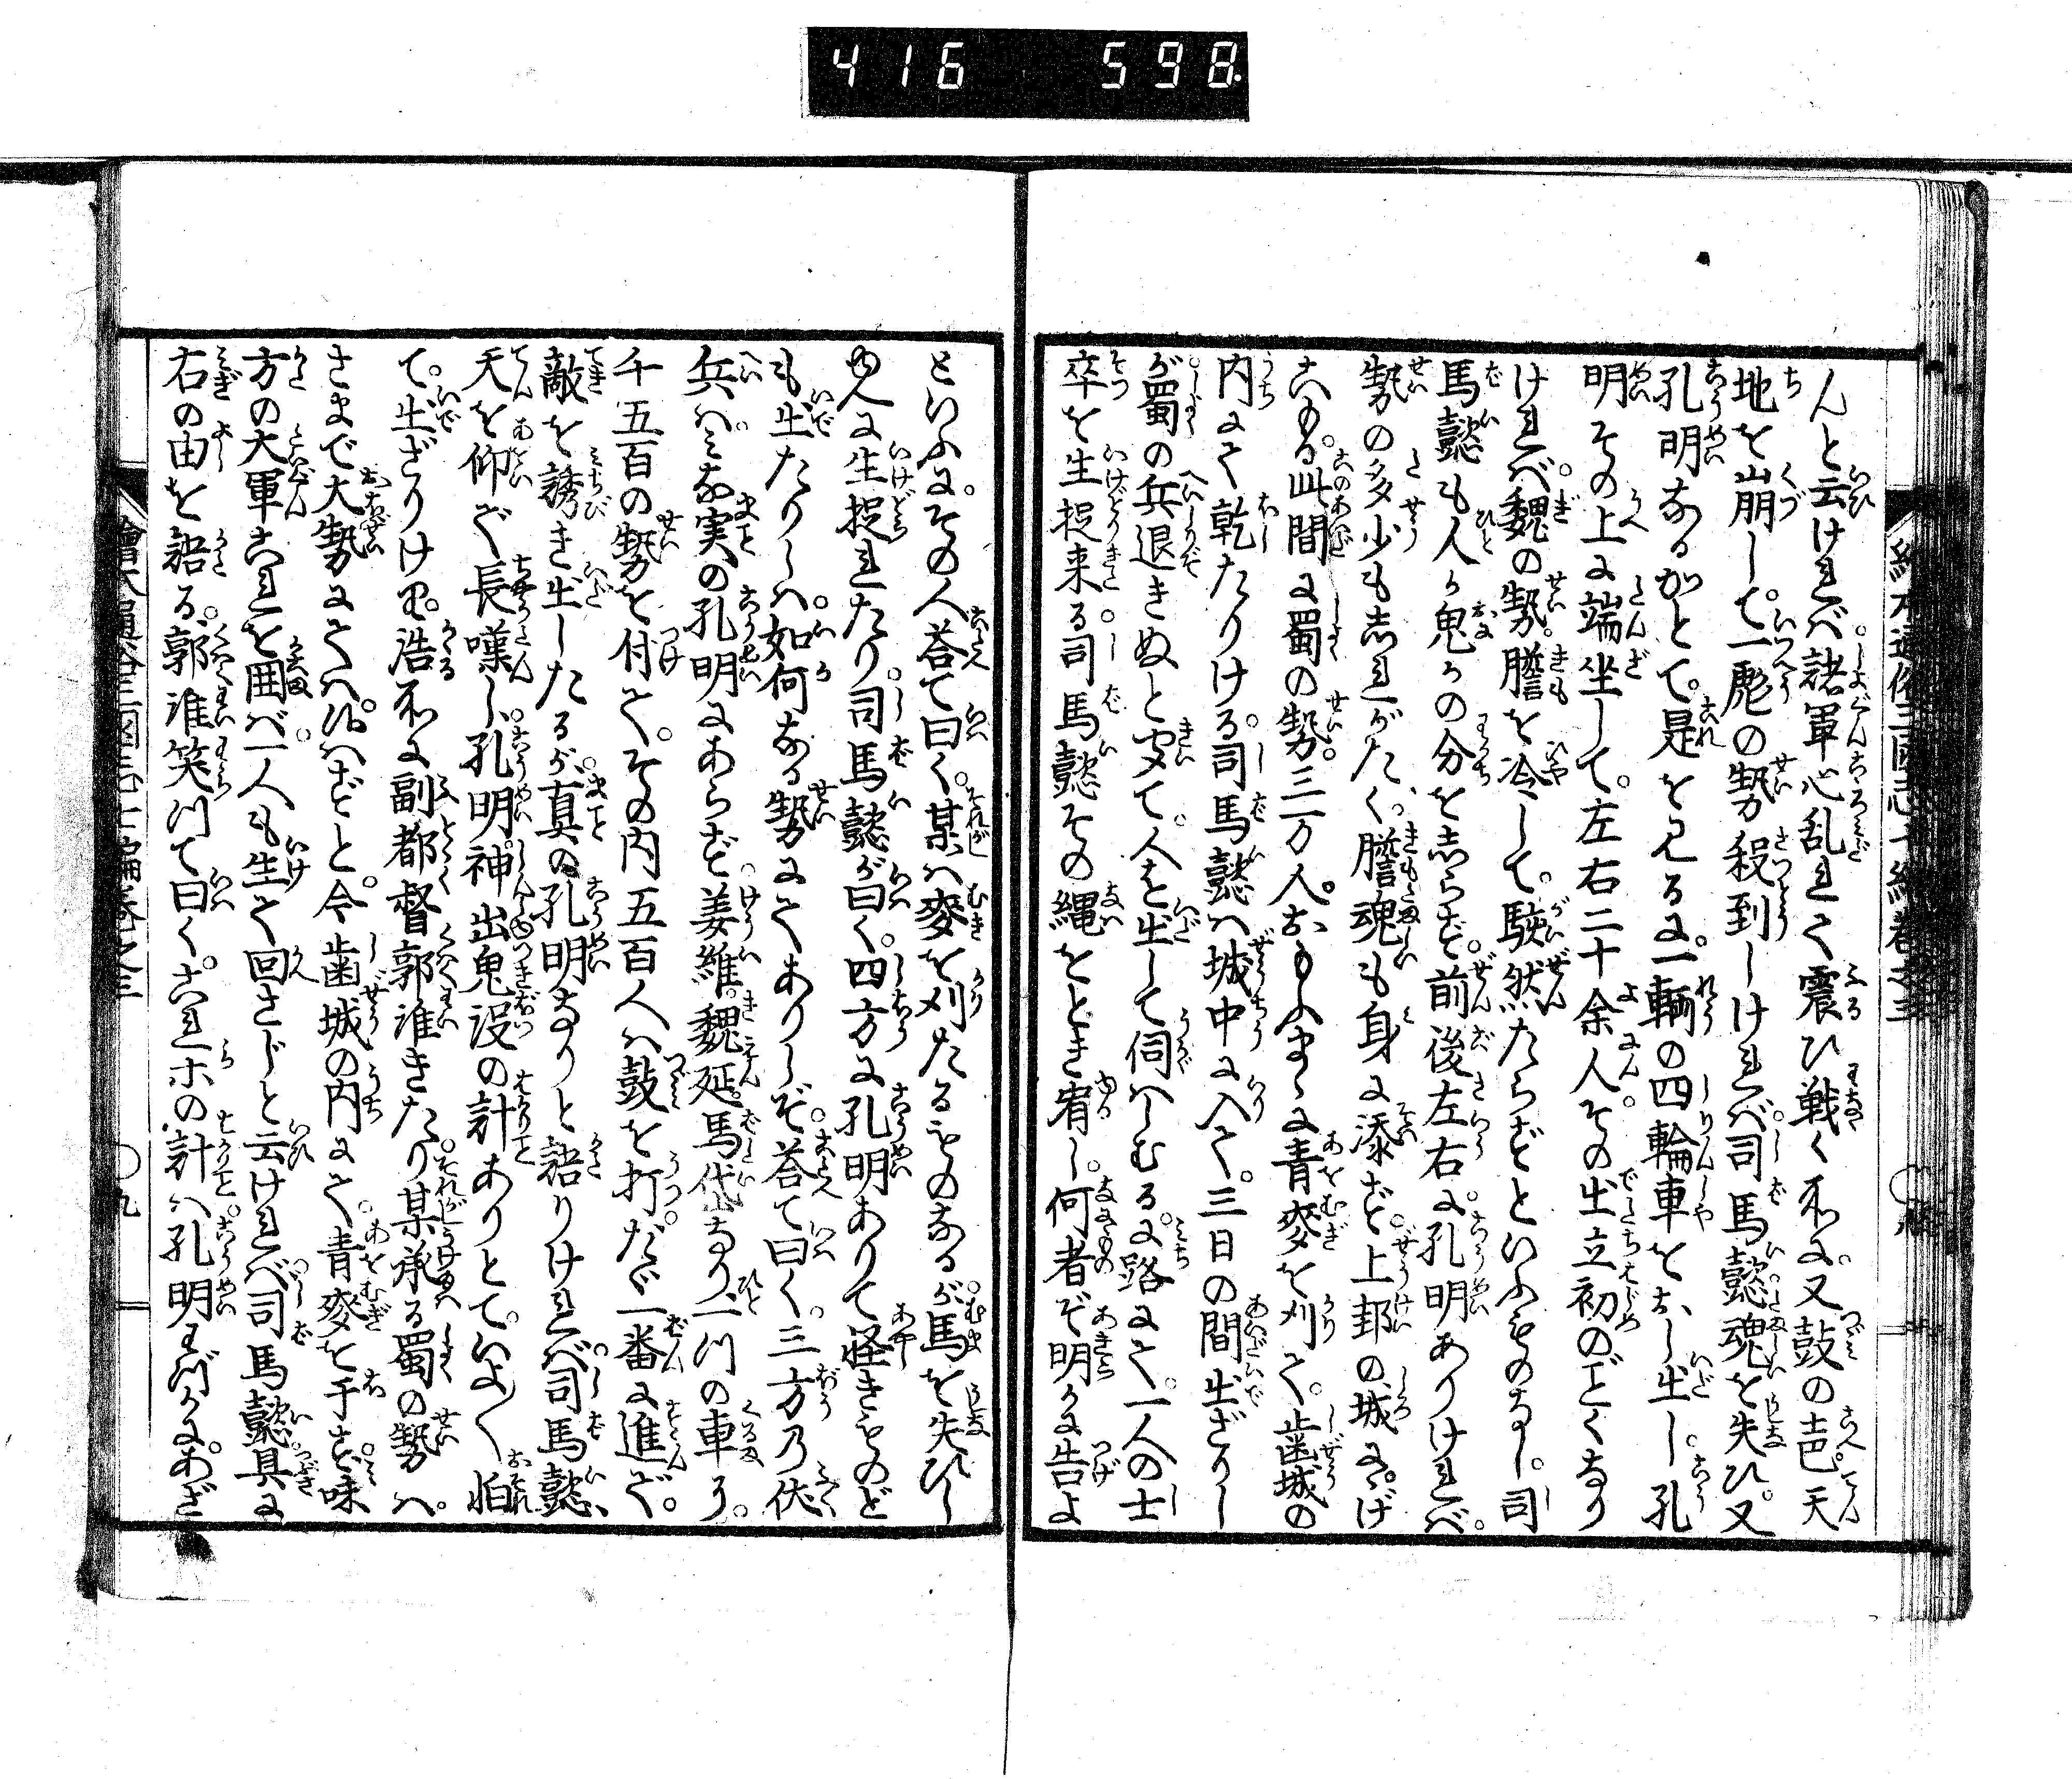 416 598
んと云ければ諸軍心乱れて震ひ戦く処に又鼓の声天
地を崩して一彪の勢殺到しければ司馬懿魂を失ひ又
孔明なるかとて是を見るに一輌の四輪車をおし出し孔
明その上に端坐して左右二十余人その出立初のごとくなり
ければ魏の勢膽を冷して駭然たらずといふものなし司
馬懿も人か鬼かの分をしらず前後左右に孔明ありければ
勢の多少もしれがたく膽魂も身に添ず上邽の城ににげ
こもる此間に蜀の勢三万人おもふまゝに青麥を刈て歯城の
内にて乾たりける司馬懿は城中に入て三日の間出ざりし
が蜀の兵退きぬと聞て人を出して伺はしむるに路にて一人の士
卒を生捉来る司馬懿その縄をとき宥し何者ぞ明かに告よ
といふにその人荅て曰く某は麥を刈たるものなるが馬を失ひし
ゆへに生捉れたり司馬懿が曰く四方に孔明ありて怪きものど
も出たりしは如何なる勢にてありしぞ荅て曰く三方乃伏
兵はみな実の孔明にあらず姜維魏延馬岱なり一川の車に
千五百の勢を付てその内五百人は鼓を打たゞ一番に進で
敵を誘き出したるが真の孔明なりと語りければ司馬懿
天を仰で長嘆し孔明神出鬼没の計ありとていよ〱怕
て出ざりけり浩処に副都督郭淮きたり某承る蜀の勢は
さまで大勢にてはぬはずと今歯城の内にて青麥を干す味
方の大軍これを囲ば一人も生て回さじと云ければ司馬懿具に
右の由を語る郭淮笑つて曰くこれ等の計は孔明わづかにあざ